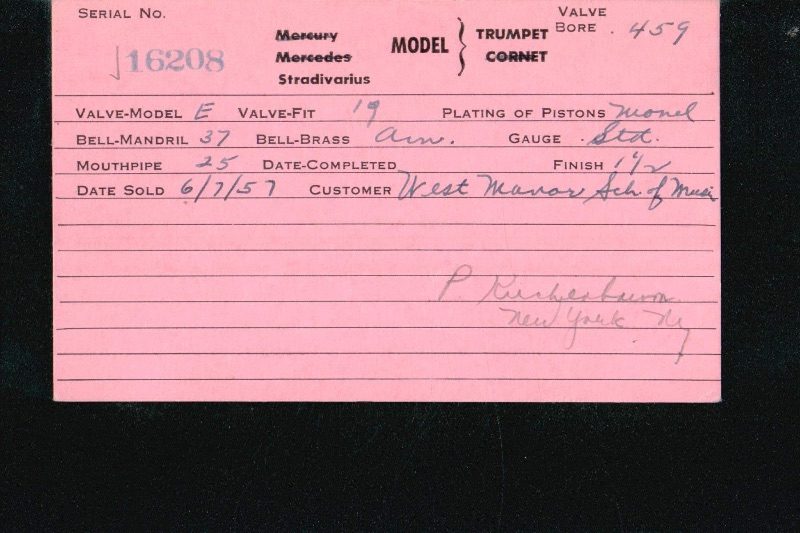 SERIAL No. 16208
Mercury
Mercedes
Stradivarius
MODEL } TRUMPET
CORNET
VALVE
BORE .459
VALVE-MODEL E VALVE-FIT 19 PLATING OF PISTONS Monel
BELL-MANDRIL 37 BELL-BRASS Am. GAUGE Std.
MOUTHPIPE 25 DATE-COMPLETED FINISH 1 1/2
DATE SOLD 6/7/57 CUSTOMER West Manor Sch. of Music
P Kirschenbaum
New York Ny